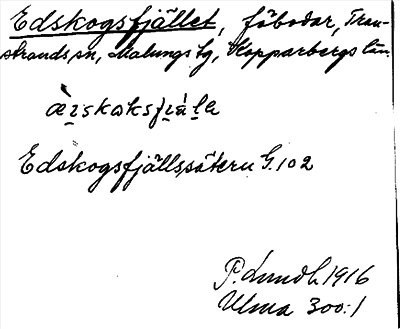 Edskogsfjället, fäbodar, Tran-
strands sn, Malungs tg, Kopparbergs län.
Edskogsfjällssätern G. 102
P. Lundh. 1916
Ulma 300:1